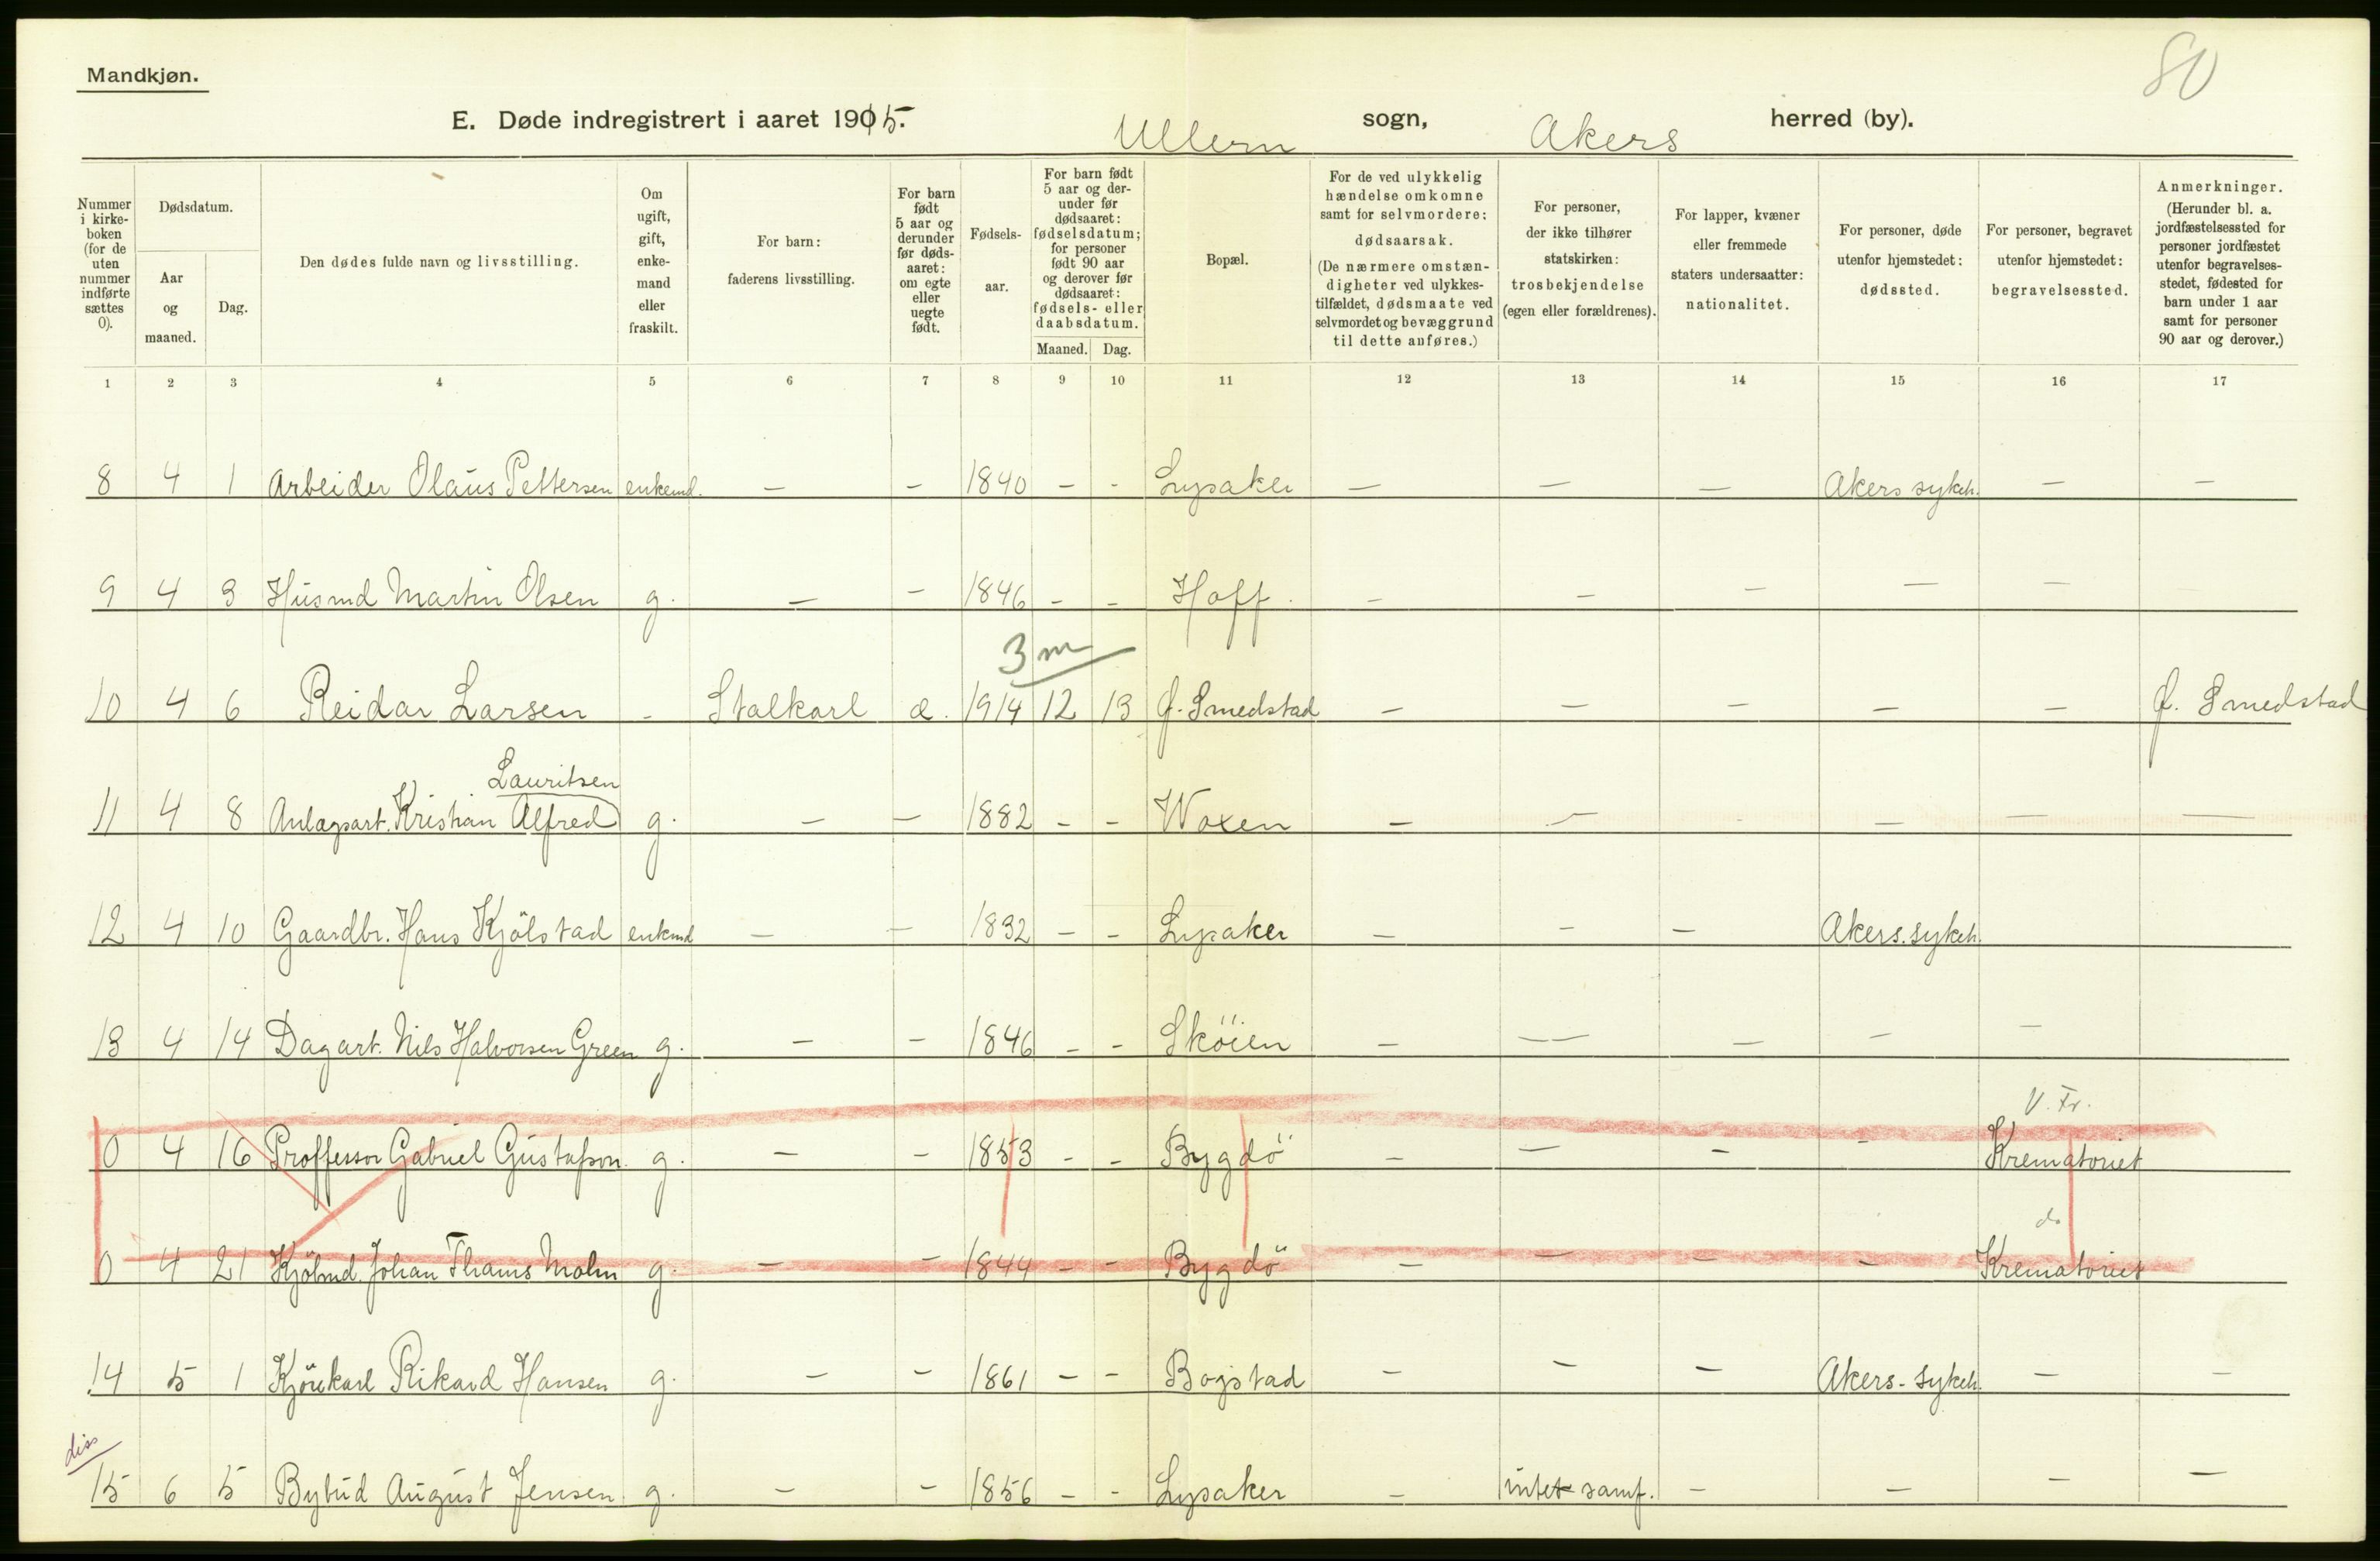 80
Mandkjøn.
E. Døde indregistrert i aaret 1915. Ullern sogn, Akers herred (by).
Nummer i kirkeboken (for de uten nummer indførte sættes 0).
Dødsdatum.
Aar og maaned.
Dag.
Den dødes fulde navn og livsstilling.
Om ugift, gift, enkemand eller fraskilt.
For barn: faderens livsstilling.
For barn født 5 aar og derunder før dødsaaret: om egte eller uegte født.
Fødselsaar.
For barn født 5 aar og derunder før dødsaaret: fødselsdatum; for personer født 90 aar og derover før dødsaaret: fødsels- eller daabsdatum.
Maaned. Dag.
Bopæl.
For de ved ulykkelig hændelse omkomne samt for selvmordere: dødsaarsak. (De nærmere omstændigheter ved ulykkestilfældet, dødsmaate ved selvmordet og bevæggrund til dette anføres.)
For personer, der ikke tilhører statskirken: trosbekjendelse (egen eller forældrenes).
For lapper, kvæner eller fremmede staters undersaatter: nationalitet.
For personer, døde utenfor hjemstedet: dødssted.
For personer, begravet utenfor hjemstedet: begravelsessted.
Anmerkninger. (Herunder bl. a. jordfæstelsessted for personer jordfæstet utenfor begravelsesstedet, fødested for barn under 1 aar samt for personer 90 aar og derover.)
1 2 3 4 5 6 7 8 9 10 11 12 13 14 15 16 17
8 4 1 Arbeider Olaus Pettersen enkemd. — — 1840 - - Lysaker — — — Akers sykeh. — —
9 4 3 Husmd Martin Olsen g. — — 1846 - - Hoff. — — — — —
3 m
10 4 6 Reidar Larsen - Stalkarl æ. 1914 12 13 Ø. Smedstad — — — — — Ø. Smedstad
Lauritsen
11 4 8 Anlægsarb. Kristian Alfred g. — — 1882 - - Woxen — — - — — —
12 4 10 Gaardbr. Hans Kjölstad enkmd — — 1832 - - Lysaker — — — Akers. sykeh.
13 4 14 Dagarb. Nils Halvorsen Green g. — — 1846 - - Sköien — — — — —
V. Fr.
0 4 16 Proffessor Gabriel Gustafson. g. — — 1853 - - Bygdö — — — — Krematoriet
do
0 4 21 Kjöbmd. Johan Thams Malm g. — — 1844 - - Bygdö — — — — Krematoriet
14 5 1 Kjörekarl Rikard Hansen g. — — 1861 - - Bogstad — — — Akers-sykeh. — —
diss
15 6 5 Bybud August Jensen g. — — 1856 - - Lysaker — intet samf. — — — —